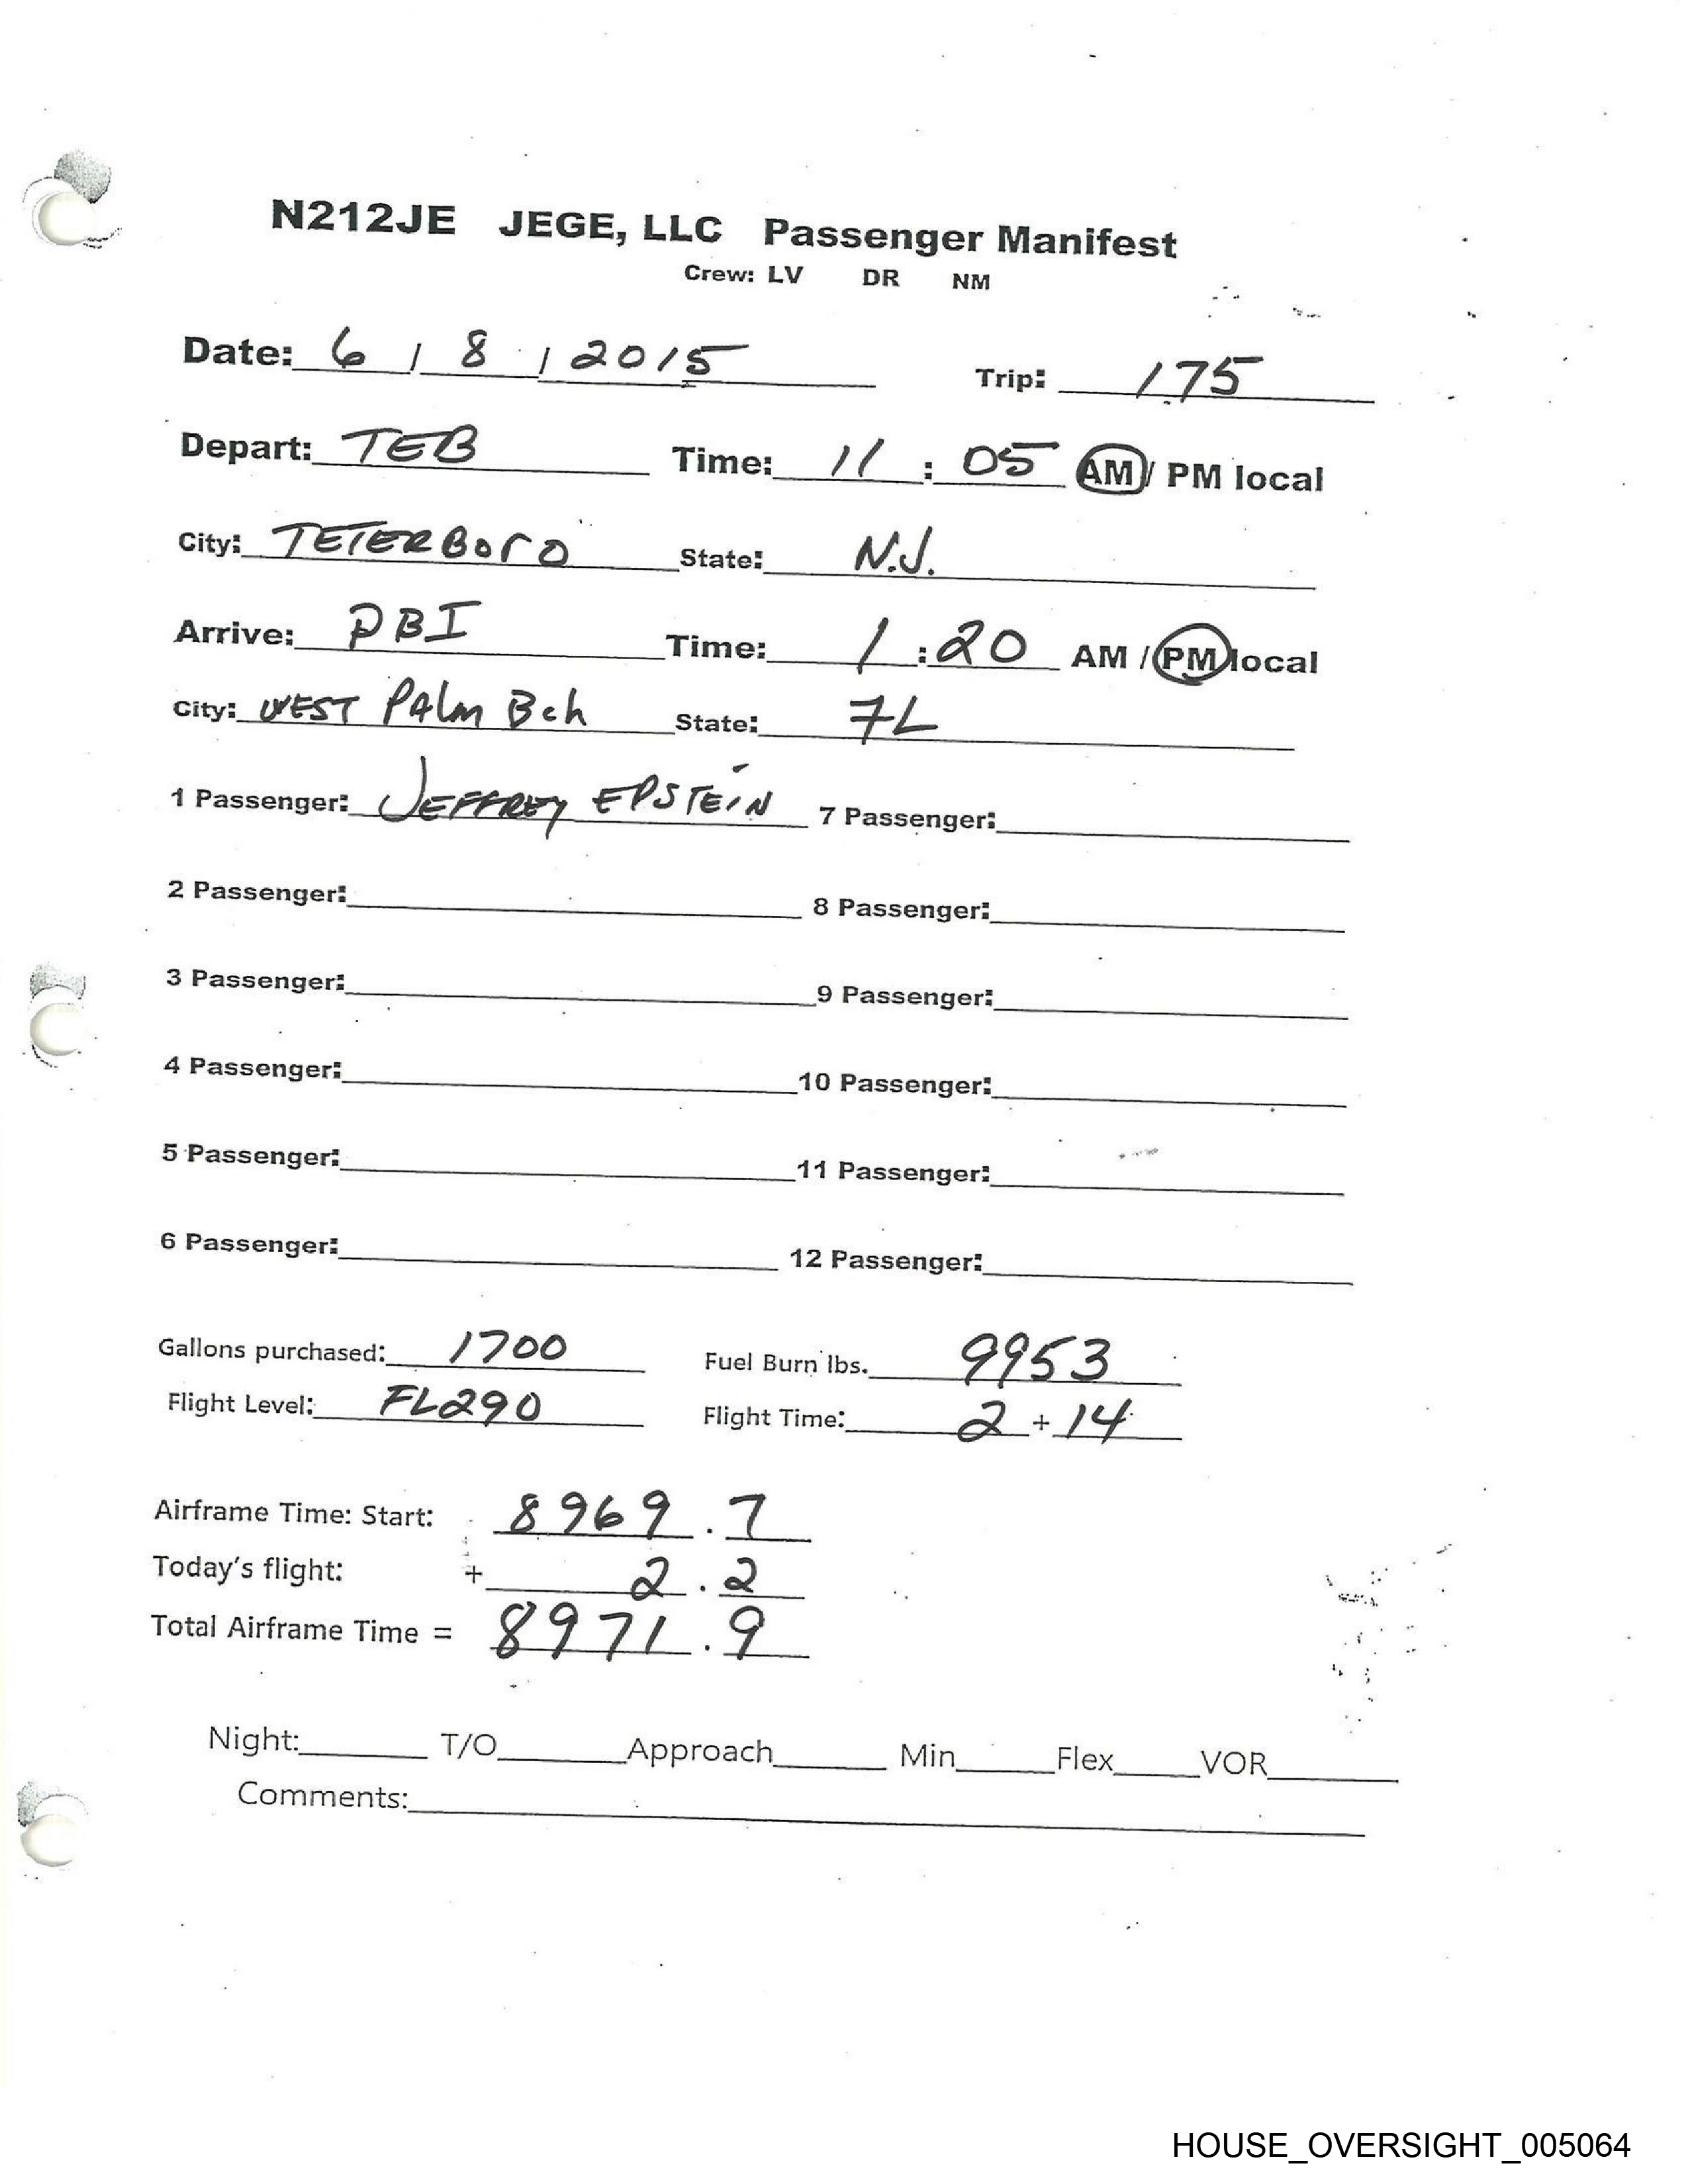 N212JE JEGE, LLC Passenger Manifest
Crew: LV DR NM
Date: 6 / 8 / 2015 Trip: 175
Depart: TEB Time: 11 : 05 AM / PM local
City: TETERBORO State: N.J.
Arrive: PBI Time: 1 : 20 AM / PM local
City: WEST PALm Bch State: FL
1 Passenger: JEFFREY EPSTEIN 7 Passenger:
2 Passenger: 8 Passenger:
3 Passenger: 9 Passenger:
4 Passenger: 10 Passenger:
5 Passenger: 11 Passenger:
6 Passenger: 12 Passenger:
Gallons purchased: 1700 Fuel Burn lbs. 9953
Flight Level: FL290 Flight Time: 2 + 14
Airframe Time: Start: 8969 . 7
Today's flight: + 2 . 2
Total Airframe Time = 8971 . 9
Night: T/O Approach Min Flex VOR
Comments:
HOUSE_OVERSIGHT_005064